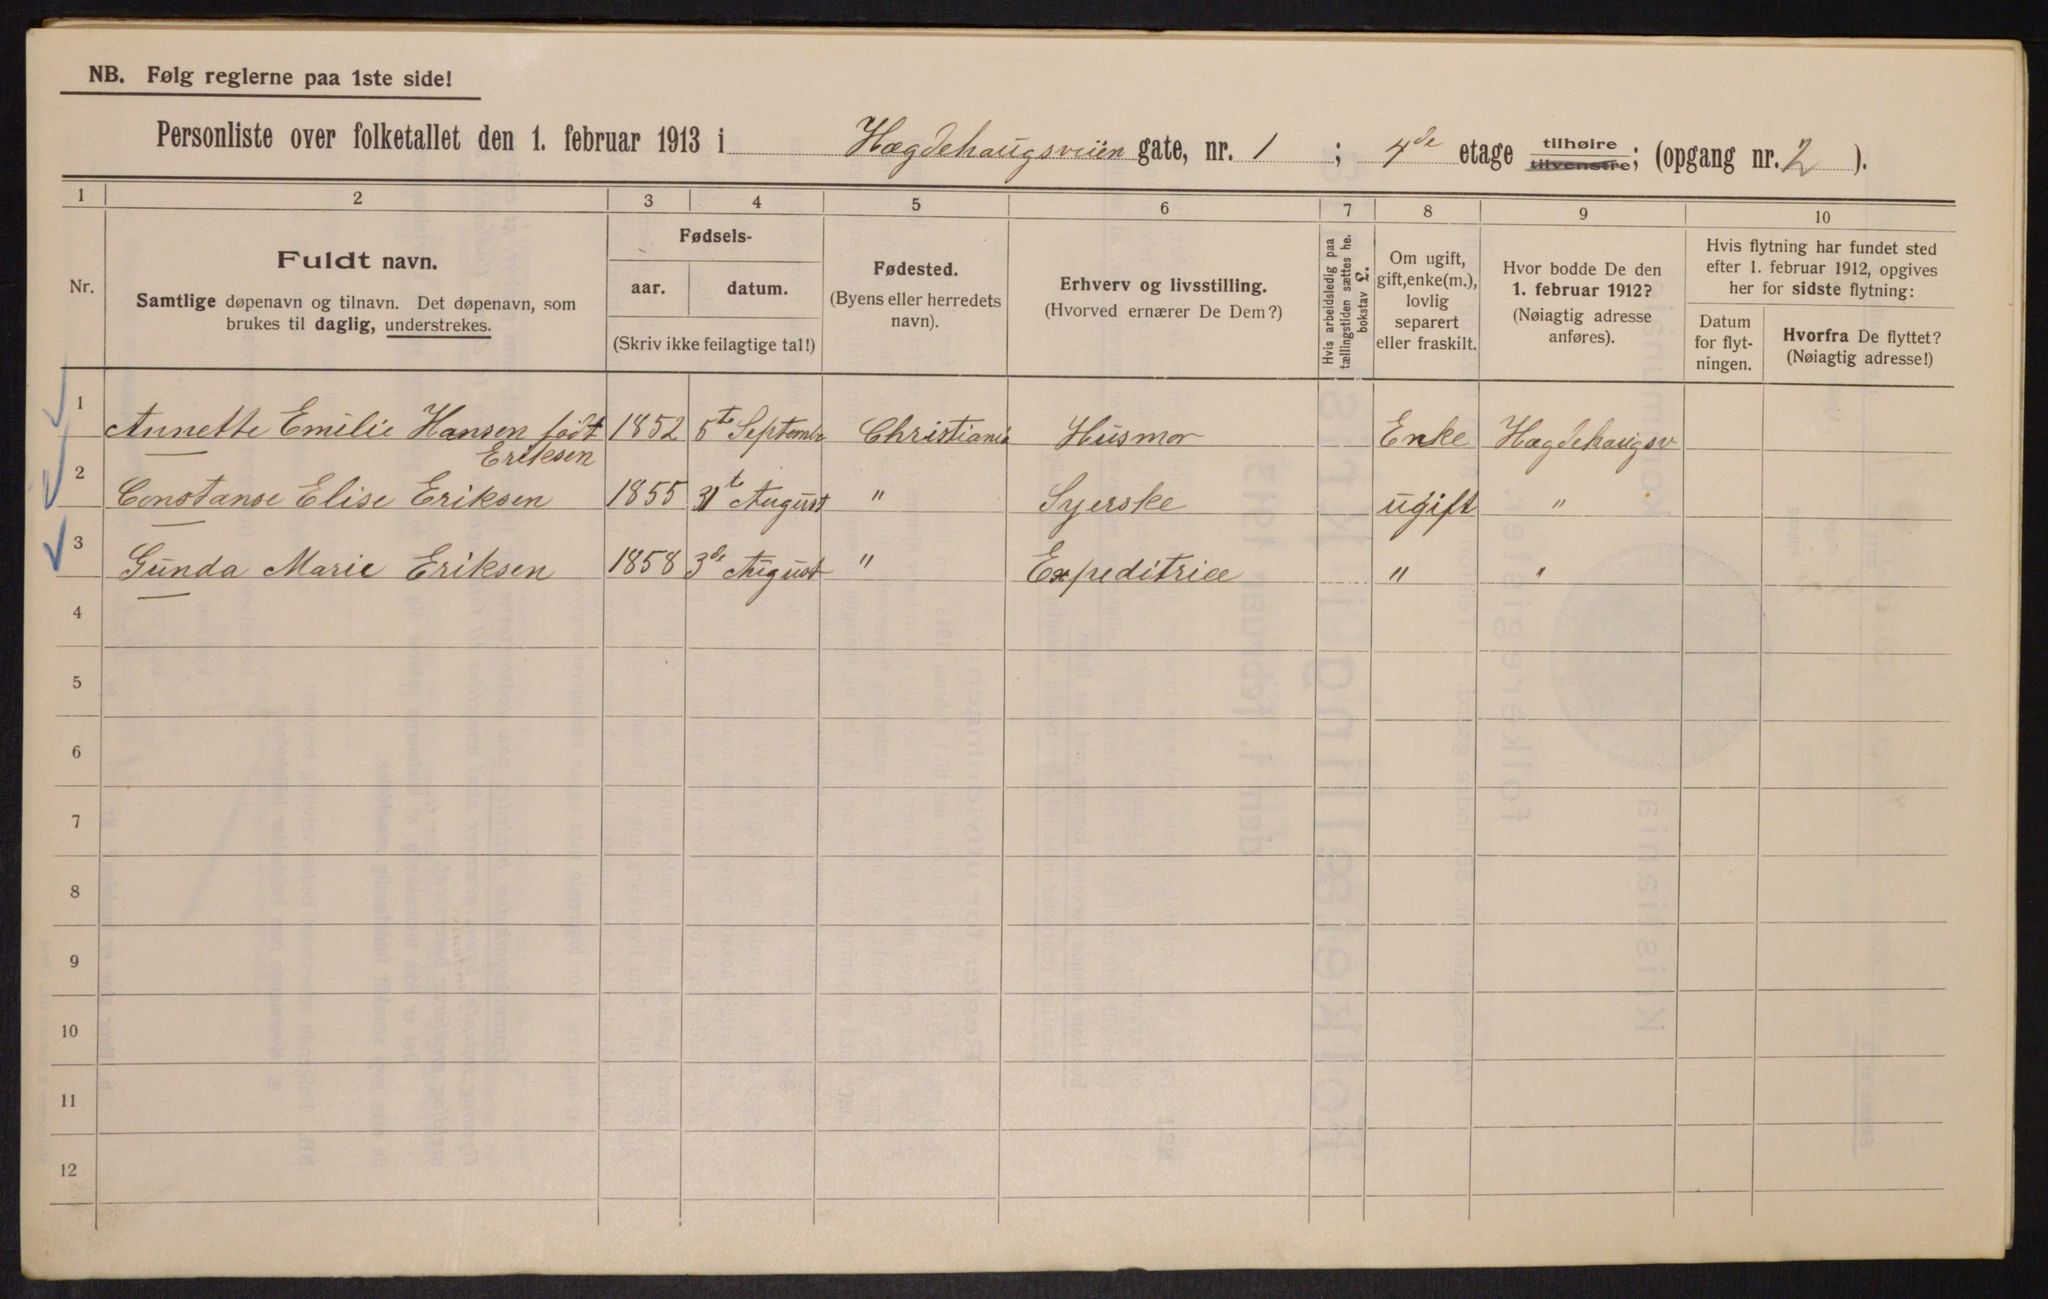 NB. Følg reglerne paa 1ste side!
Personliste over folketallet den 1. februar 1913 i Hægdehaugsveien gate, nr. 1 ; 4de etage tilhøire tilvenstre; (opgang nr. 2 ).
1 2 3 4 5 6 7 8 9 10
Nr.
Fuldt navn.
Samtlige døpenavn og tilnavn. Det døpenavn, som
brukes til daglig, understrekes.
Fødsels-
aar. datum.
(Skriv ikke feilagtige tal!)
Fødested.
(Byens eller herredets
navn).
Erhverv og livsstilling.
(Hvorved ernærer De Dem?)
Hvis arbeidsledig paa
tællingstiden sættes he.
bokstav L.
Om ugift,
gift, enke(m.),
lovlig
separert
eller fraskilt.
Hvor bodde De den
1. februar 1912?
(Nøiagtig adresse
anføres).
Hvis flytning har fundet sted
efter 1. februar 1912, opgives
her for sidste flytning:
Datum
for flyt-
ningen.
Hvorfra De flyttet?
(Nøiagtig adresse!)
1 Annette Emilie Hansen født 1852 5t Septembr Christiania Husmor Enke Hægdehaugsv
Eriksen
2 Constanse Elise Eriksen 1855 31t August " Syerske ugift "
3 Gunda Marie Eriksen 1858 3de August " Expeditrice " "
4
5
6
7
8
9
10
11
12